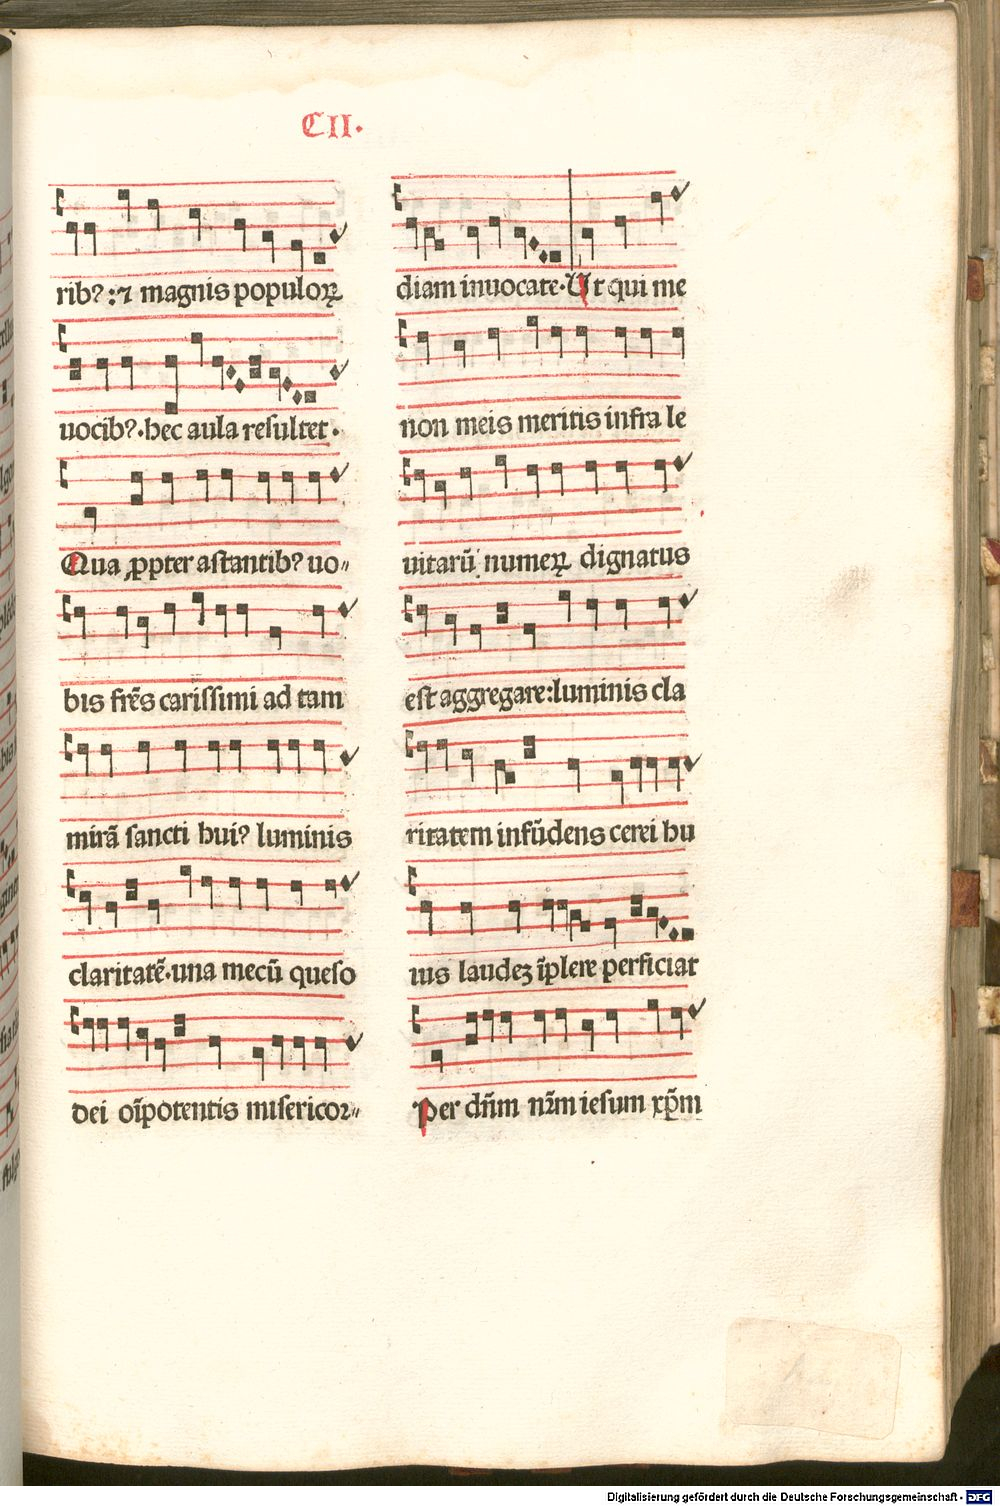 CII.
rib?:⁊ magnis populoꝝ
uocib?.hec aula resultet.
Qua ꝓpter astantib? uo„
bis frēs carissimi ad tam
mirā sancti hui? luminis
claritatē.una mecū queso
dei oīpotentis misericor„
diam inuocate.Ut qui me
non meis meritis infra le
uitarū numeꝝ dignatus
est aggregare:luminis cla
ritatem infūdens cerei hu
ius laudeʒ īplere perficiat
Per dn̄m nr̄m iesum xp̄m
Digitalisierung gefördert durch die Deutsche Forschungsgemeinschaft - DFG